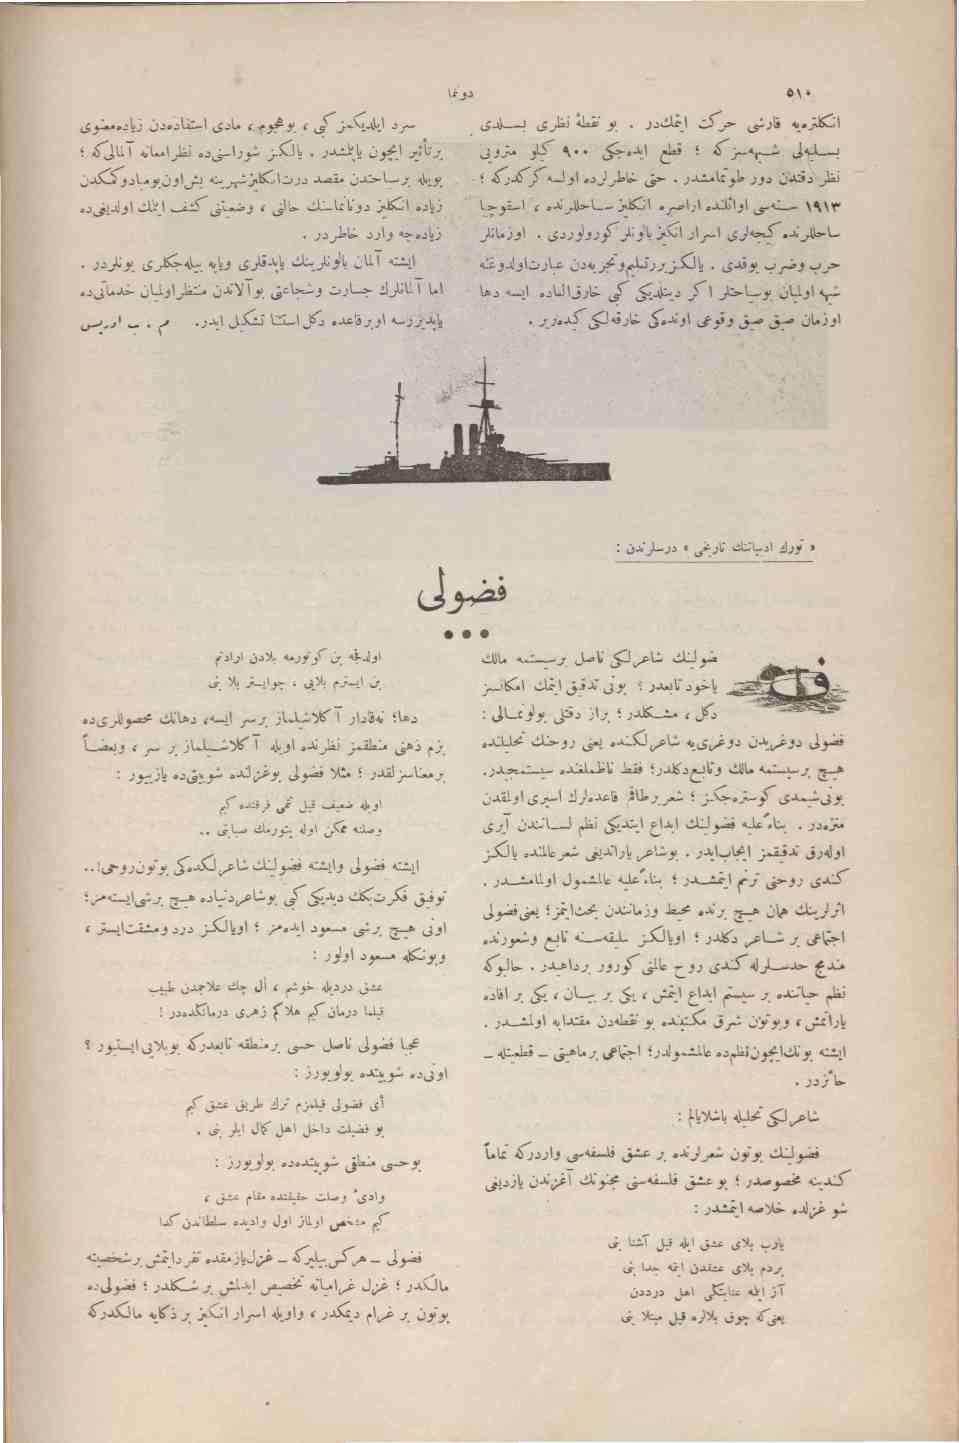 ٥١٠
دونما
انكلتره‌يه قارشى حركت ايتمك‌در . بو نقطۀ نظرى بسله‌دى
بسليه‌لى شبهه‌سز كه ؛ قطع ايده‌جكى ٩٠٠ كيلو مترويى
نظر دقتدن دور طوتمامشدر . حتى خاطرلرده اولسه كركدركه ؛
١٩١٣ سنه‌سى اوائلنده اراصره انكليز ساحللرنده ، اسقوچيا
ساحللرنده كيجه‌لرى اسرار انكيز بالونلر كورولوردى . اوزمانلر
حرب وضرب يوقدى . يالكز بررتعليم‌وتجربه‌دن عبارت‌اولدوغنه
شبهه اولميان بوسياحتلر اكر دينلديكى كبى خارق‌العاده ايسه دها
اوزمان صيق صيق وقوعى اونده‌كى خارقه‌لكى كيده‌رير .
سرد ايلديكمز كبى ، بوهجوم ، مادى استفاده‌دن زياده‌معنوى
برتأثير ايچون ياپلمشدر . يالكز شوراسنى‌ده نظر امعانه آلمالى‌كه ؛
بويله برساحتدن مقصد درت‌انكليزشهرينه بش‌اون‌بومبادوكمكدن
زياده انكليز دوناتماسنك حالنى ، وضعيتنى كشف ايتمك اولديغى‌ده
زياده‌جه وارد خاطردر .
ايشته آلمان بالونلرينك ياپدقلرى وياپه بيله‌جكلرى بونلردر .
اما آلمانلرك جسارت وشجاعتى بوآلاتدن منتظراولميان خدماتى‌ده
ياپديررسه اوبرقاعده دكل استثنا تشكيل ايدر. م . ب ادريس
« تورك ادبياتنك تاريخى » درسلرندن :
فضولى
فضولينك شاعرلكى ناصل برسيستمه مالك
ياخود تابعدر ؟ بونى تدقيق ايتمك امكانسز
دكل ، مشكلدر ؛ براز دقتلى بولونمالى :
فضولى دوغريدن دوغرى‌يه شاعرلكنده يعنى روحنك تحليلنده
هيچ برسيستمه مالك وتابع‌دكلدر؛ فقط ناظملغنده سيستمجيدر.
بونى‌شيمدى كوستره‌جكز ؛ شعر برطاقم قاعده‌لرك اسيرى اولمقدن
منزه‌در . بناءً عليه فضولينك ابداع ايتديكى نظم لسانندن آيرى
اوله‌رق تدقيقمز ايجاب‌ايدر . بوشاعر ياراتديغى شعر عالمنده يالكز
كندى روحنى ترنم ايتمشدر ؛ بناءً عليه عالمشمول اولمامشدر .
اثرلرينك همان هيچ برنده محيط وزمانندن بحث‌ايتمز؛ يعنى‌فضولى
اجتماعى بر شاعر دكلدر ؛ اويالكز سليقه‌سنه تابع وشعورنده
مندمج حدسلرله كندى روح عالمنى كورور بردا‌هيدر . حالبوكه
نظم حياتنده بر سيستم ابداع ايتمش ، يكى بر بيان ، يكى بر افاده
ياراتمش ، وبوتون شرق مكتبنده بو نقطه‌دن مقتدابه اولمشدر .
ايشته بونك‌ايچون‌نظم‌ده عالمشمولدر؛ اجتماعى برماهيتى ـ قطعيتله ـ
حائزدر .
شاعرلكى تحليله باشلايالم :
فضولينك بوتون شعرلرنده بر عشق فلسفه‌سى واردركه تماماً
كندينه مخصوصدر ؛ بو عشق فلسفه‌سنى مجنونك آغزندن يازديغى
شو غزلده خلاصه ايتمشدر :
يارب بلاى عشق ايله قيل آشنا بنى
بردم بلاى عشقدن ايتمه جدا بنى
آز ايلمه عنايتكى اهل درددن
يعنى‌كه چوق بلالره قيل مبتلا بنى
اولدقجه بن كوتورمه بلادن ارادتم
بن ايسترم بلايى ، چوايستر بلا بنى
دها؛ نه‌قادار آكلاشيلماز برسر ايسه، دهانك محصوللرى‌ده
بزم ذهنى منطقمز نظرنده اويله آكلاشيلماز بر سر ، وبعضاً
برمعناسزلقدر ؛ مثلا فضولى بوغزلنده شوبيتى‌ده يازييور :
اويله ضعيف قيل تنمى فرقتنده كيم
وصلنه ممكن اوله يتورمك صبا بنى ..
ايشته فضولى وايشته فضولينك شاعرلكده‌كى بوتون‌روحى!..
توفيق فكرت‌بكك ديديكى كبى بوشاعردنياده هيچ برشى‌ايسته‌مز؛
اونى هيچ برشى مسعود ايده‌مز ؛ اويالكز درد ومشقت‌ايستر ،
وبونكله مسعود اولور :
عشق درديله خوشم ، ال چك علاجمدن طبيب
قيلما درمان كيم هلاكم زهرى درمانكده‌در !
عجبا فضولى ناصل حسى برمنطقه تابعدركه بوبلايى‌ايستيور ؟
اونى‌ده شوبيتده بولويورز :
أى فضولى قيلمزم ترك طريق عشق كيم
بو فضيلت داخل اهل كمال ايلر بنى .
بوحسى منطقى شوبيتده‌ده بولويورز :
وادىء وصلت حقيقتده مقام عشق ،
كيم مشخص اولماز اول واديده سلطاندن كدا
فضولى ـ هركس‌بيليركه ـ غزل‌يازمقده تفردايتمش برشخصيته
مالكدر ؛ غزل غرامياته تخصيص ايدلمش بر شكلدر ؛ فضولى‌ده
بوتون بر غرام ديمكدر ، واويله اسرار انكيز بر ذكايه مالكدركه